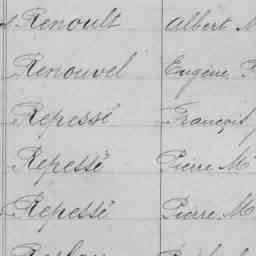 Renoult Albert M
Renouvel Eugène P
Repessé François
Repessé Pierre M
Repessé Pierre M